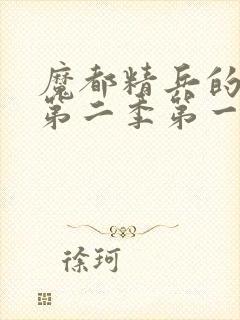 魔都精兵的
第二季第一
徐珂